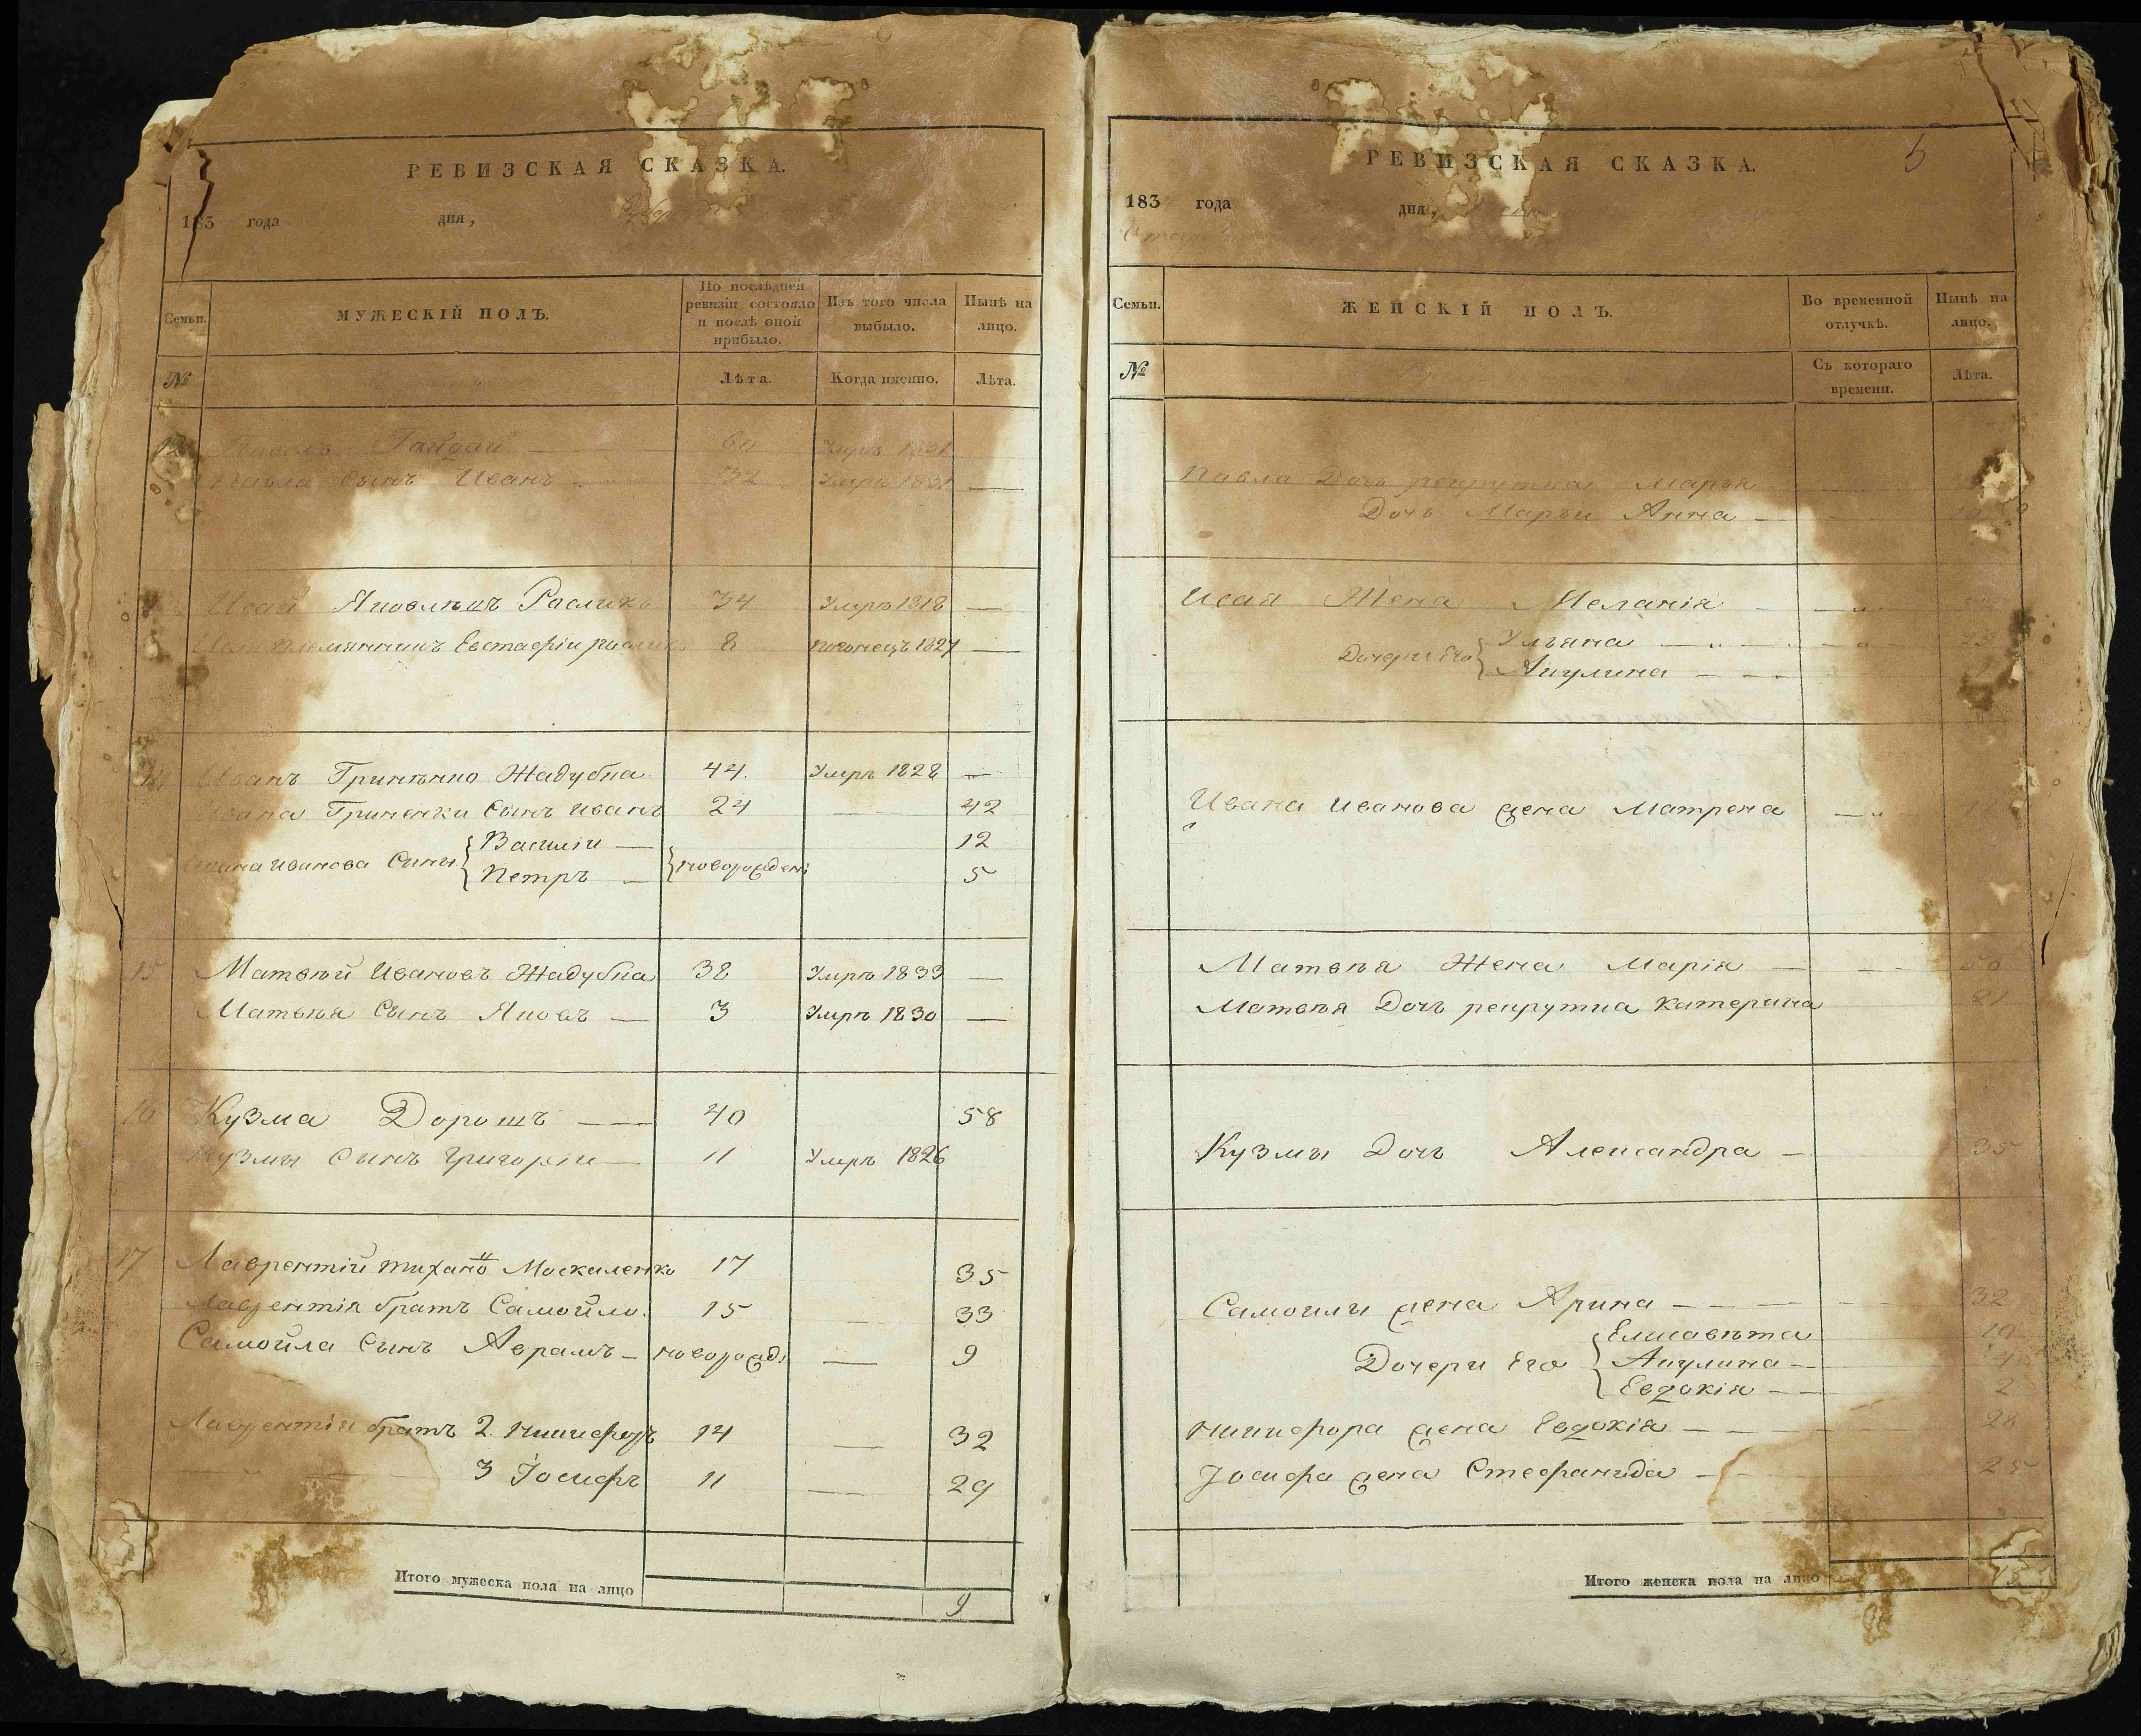 РЕВИЗСКАЯ СКАЗКА.
183 года дня,
Семьи.
МУЖЕСКІЙ ПОЛЪ.
По послѣдней ревизіи состояло и послѣ оной прибыло.
Изъ того числа выбыло.
Нынѣ на лицо.
№
Лѣта.
Когда именно.
Лѣта.
Гайдай — 60 Умръ 1831
Павла Сынъ Иванъ 32 Умръ 1831 —
34 Умръ 1818 —
Евстафіи 8 1827 —
14 Иванъ Гриненко Жадубка 44. Умръ 1828 —
Ивана Гриненки Сынъ Иванъ 24 — 42
Ивана Иванова Сыны { Василіи — } новорожден: 12
Петръ — 5
15 Матвѣй Ивановъ Жадубка 38 Умръ 1833 —
Матвѣя Сынъ Яковъ — 3 Умръ 1830 —
16 Кузма Дорошъ — 40 58
Кузмы Сынъ Григоріи — 11 Умръ 1826
17 Лаврентій Москаленко 17 35
Лаврентія братъ Самойло. 15 — 33
Самойла Сынъ Аврамъ — новорожд: — 9
Лаврентія братъ 2. Никифоръ 14 — 32
3 Іосифъ 11 — 29
Итого мужеска пола на лицо 9
РЕВИЗСКАЯ СКАЗКА.
5
183 года дня,
Семьи.
ЖЕНСКІЙ ПОЛЪ.
Во временной отлучкѣ.
Нынѣ на лицо.
№
Съ котораго времени.
Лѣта.
Павла Дочь рекрутка Марья
Дочь Марьи Анна —
Исая Жена Меланія
Дочери Его { Ульяна —
Акулина —
Ивана Иванова жена Матрена
Матвѣя Жена Марія — 50
Матвѣя Дочь рекрутка Катерина
Кузмы Дочь Александра — 35
Самоилы жена Арина — 32
Дочери Его { Елисавѣта 10
Акулина —
Евдокія — 2
Никифора жена Евдокія — 26
Іосифа жена Стефанида — 25
Итого женска пола на лицо